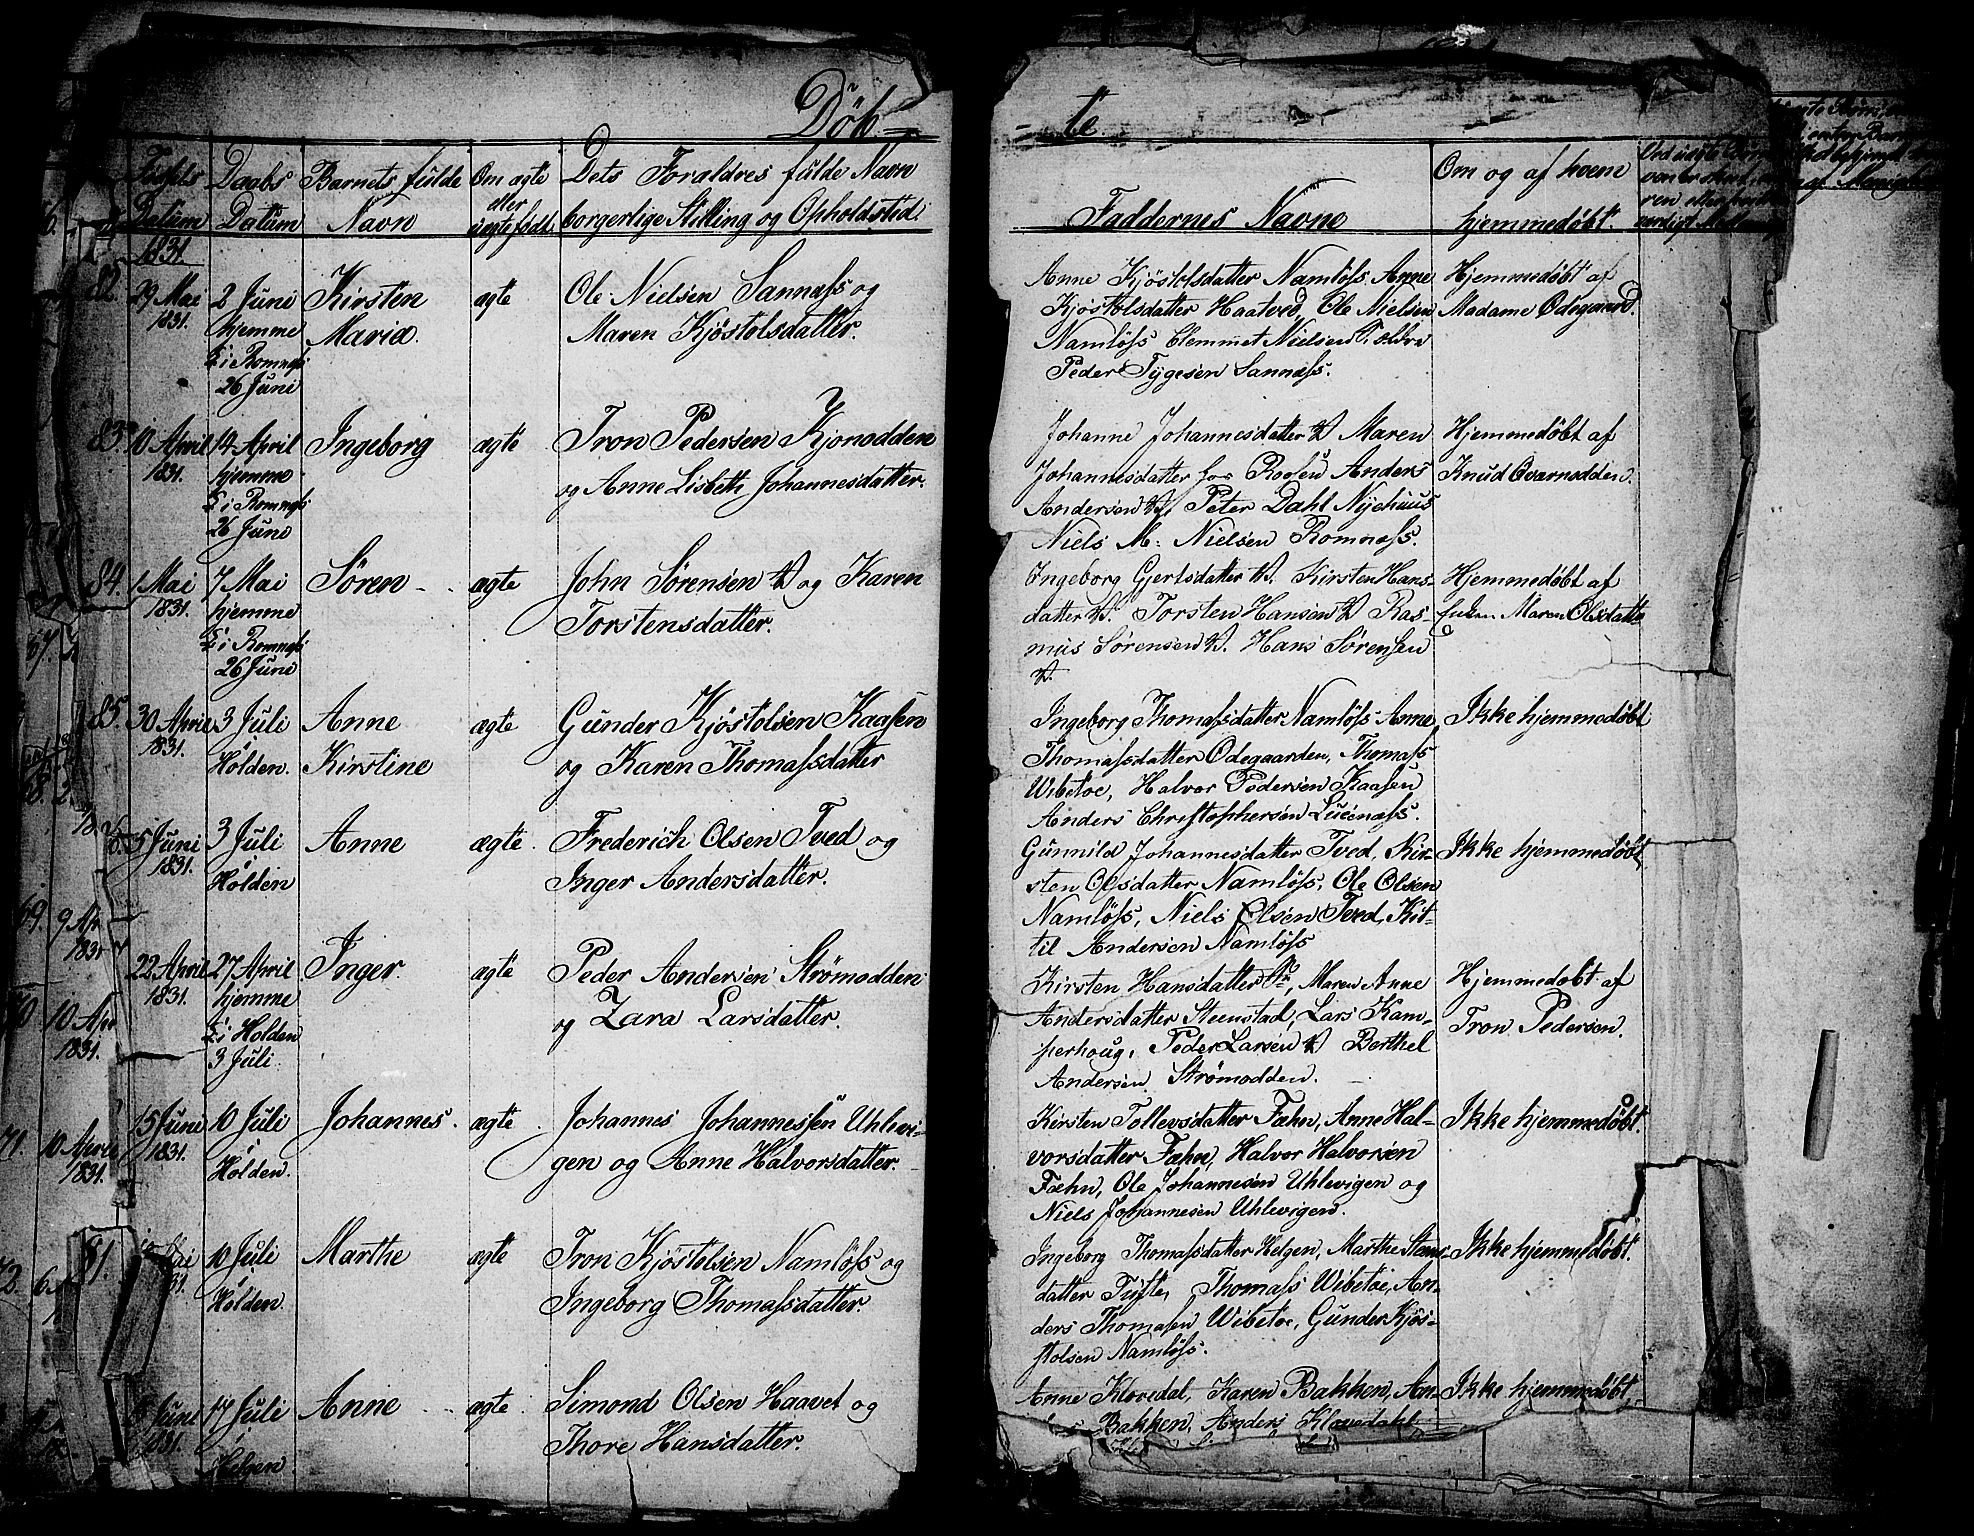 Döb=
- te.
Fødsels Datum Daabs Datum Barnets fulde Navn Om ægte eller uægte født. Dets Forældres fulde Navn borgerlige Stilling og Opholdsted.
Faddernes Navne Om og af hvem hjemmedøbt.
1831.
82. 29 Mai 1831. 2 Juni hjemme & i Romnæs 26 Juni
Kirsten Maria.
ægte
Ole Nielsen Sannæss og
Maren Kjöstolsdatter.
Anne Kjöstolsdatter Namlöss Anne
Kjöstolsdatter Haatved, Ole Nielsen
Namlöss Clemmet Nielsen
Peder Tygesen Sannæss.
Hjemmedöbt af
Madame Ödegaard.
83. 10 April 1831. 14 April hjemme & i Romnæs 26 Juni
Ingeborg
ægte
Tron Pedersen Kjönodden
og Anne Lisbeth Johannesdatter.
Johanne Johannesdatter Maren
Johannesdatter Anders
Andersen Peter Dahl Nyehuus
Niels M. Nielsen Romnæss.
Hjemmedöbt af
Knud Qvarnodden.
84. 1 Mai 1831. 7 Mai hjemme & i Romnæs 26 Juni
Sören
ægte
John Sörensen og Karen
Torstensdatter.
Ingeborg Gjertsdatter Kirsten Hans-
datter Torsten Hansen Ras-
mus Sörensen Hans Sörensen
Hjemmedöbt af
Maren Olsdatter
85. 30 April 1831. 3 Juli i Holden.
Anne
Kirstine
ægte
Gunder Kjöstolsen Kaasen
og Karen Thomassdatter
Ingeborg Thomassdatter Namlöss Anne
Thomassdatter Ödegaarden, Thomass
Wibetoe, Halvor Pedersen Kaasen
Anders Christophersen Lucenæss.
Ikke hjemmedöbt
5 Juni 1831. 3 Juli i Holden
Anne
ægte.
Frederich Olsen Tved og
Inger Andersdatter.
Gunnild Johannesdatter Tved, Kir-
sten Olsdatter Namlöss, Ole Olsen
Namlöss, Niels Olsen Tved, Kit-
til Andersen Namlöss
Ikke hjemmedöbt
22 April 1831. 27 April hjemme & i Holden 3 Juli
Inger.
ægte
Peder Andersen Strömodden
og Zara Larsdatter.
Kirsten Hansdatter Maren Anne
Andersdatter Steenstad, Lars Kam-
perhoug, Peder Larsen Berthel
Andersen Strömodden.
Hjemmedöbt af
Tron Pedersen.
15 Juni 1831. 10 Juli i Holden.
Johannes.
ægte.
Johannes Johannessen Uhlevi-
gen og Anne Halvorsdatter.
Kirsten Tollevsdatter Fæhn, Anne Hal-
vorsdatter Fæhn, Halvor Halvorsen
Fæhn, Ole Johannesen Uhlevigen og
Niels Johannesen Uhlevigen.
Ikke hjemmedöbt.
Mai 10 Juli i Holden.
Marthe
ægte
Tron Kjöstolsen Namlöss og
Ingeborg Thomassdatter.
Ingeborg Thomassdatter Helgen, Marthe
datter Tufte, Thomass Wibetoe, An-
ders Thomasen Wibetoe, Gunder Kjös-
tolsen Namlöss.
Ikke hjemmedöbt.
Juni 1831. 17 Juli i Helgen.
Anne
ægte.
Simond Olsen Haavet og
Thore Hansdatter.
Anne Klovedal, Karen Bakken, An-
ders Bakken, Anders Klovedahl,
Ikke hjemmedöbt.
67.
69. 9 Ap 1831
70 10 Ap 1831.
71. 10 April 1831.